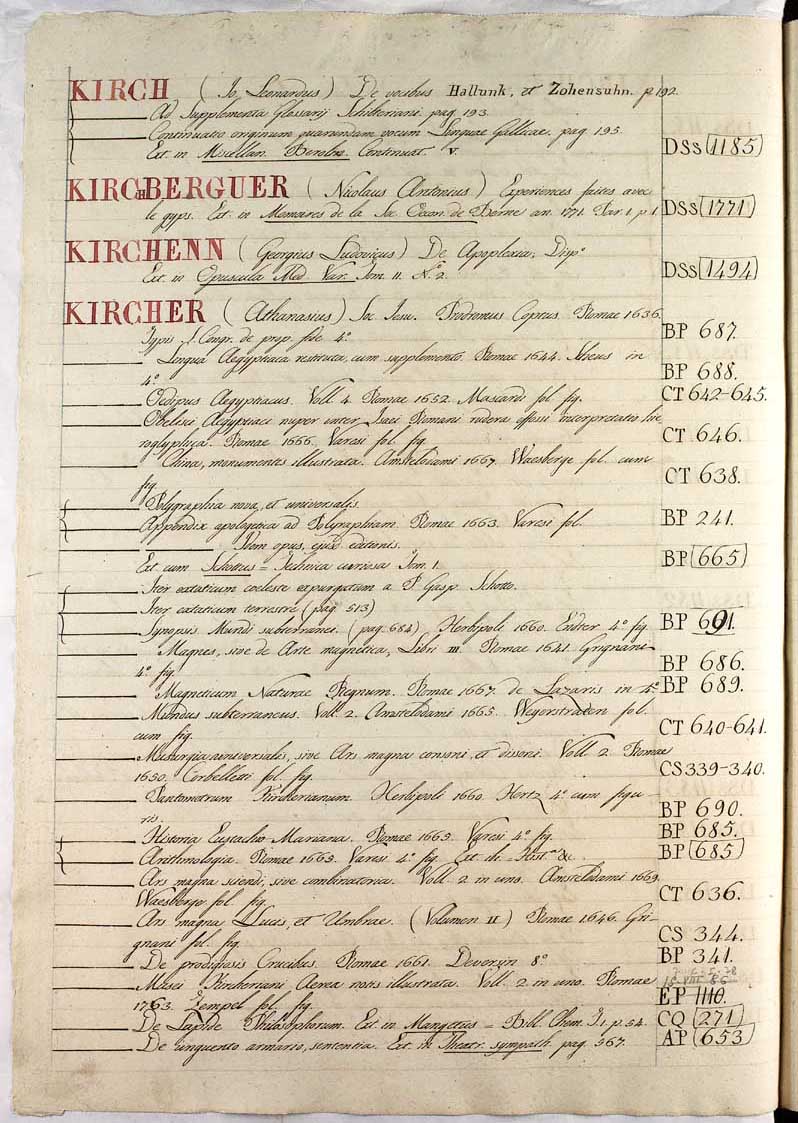 KIRCH (Jo. Leonardus) De vocibus Hallunk, et Zohensuhn. p 192.
Ad Supplementa Glossarij Schilteriani pag 193.
Continuatio originum quarundam vocum Linguae Gallicae. pag 195.
Ext. in Miscellan. Berolin. Continuat. V. DSs 1185
KIRCHBERGUER (Nicolaus Antonius) Experiences faites avec
le gyps. Ext. in Memoires de la Soc. Œcon. de Berne an. 1771. Par. 1. p. 1. DSs 1771
KIRCHENN (Georgius Ludovicus) De Apoplexia, Disp.o
Ext. in Opuscula Med. Var. Tom. II. N.o 2. DSs 1494
KIRCHER (Athanasius) Soc. Jesu. Prodromus Coptus. Romae 1636.
Typis S. Congr. de prop. fide 4.o BP 687.
Lingua Aegyptiaca restituta, cum supplemento. Romae 1644. Scheus in
4.o BP 688.
Oedipus Aegyptiacus. Voll. 4. Romae 1652. Mascardi fol. fig. CT 642-645.
Obelisci Aegyptiaci nuper inter Isaei Romani rudera effossi interpretatio hie
roglyphica. Romae 1666. Varesi fol. fig. CT 646.
China, monumentis illustrata. Amstelodami 1667. Waesberge fol. cum
fig. CT 638.
Polygraphia nova, et universalis.
Appendix apologetica ad Polygraphiam. Romae 1663. Varesi fol. BP 241.
Idem opus, ejusd. editionis.
Ext. cum Schottus = Technica curiosa Tom. 1. BP 665
Iter extaticum coeleste expurgatum a P. Gasp. Schotto.
Iter extaticum terrestre (pag 513)
Synopsis Mundi subterranei. (pag. 684) Herbipoli 1660. Endter 4.o fig. BP 691.
Magnes, sive de Arte magnetica, Libri III. Romae 1641. Grignani
4.o fig. BP 686.
Magneticum Naturae Regnum. Romae 1667. de Lazaris in 4.o BP 689.
Mundus subterraneus. Voll. 2. Amstelodami 1665. Weyerstraten fol.
cum fig. CT 640-641.
Musurgia universalis, sive Ars magna consoni, et dissoni. Voll 2. Romae
1650. Corbelletti fol. fig. CS 339-340.
Pantometrum Kircherianum. Herbipoli 1660. Hertz 4.o cum figu
ris. BP 690.
Historia Eustachio-Mariana. Romae 1665. Varesi 4.o fig. BP 685.
Arithmologia. Romae 1665. Varesi. 4.o fig. Ext. ib. Hist.a &c. BP 685
Ars magna sciendi, sive combinatoria. Voll. 2 in uno. Amstelodami 1669.
Waesberge fol. fig. CT 636.
Ars magna Lucis, et Umbrae. (Volumen II) Romae 1646. Gri-
gnani fol. fig. CS 344.
De prodigiosis Crucibus. Romae 1661. Deversin 8.o BP 341.
Musei Kircheriani Aerea notis illustrata. Voll. 2 in uno. Romae
1763. Zempel fol. fig. EP 1110.
De Lapide Philosophorum. Ext. in Mangettus = Bibl. Chem. T. 1. p. 54. CQ 271
De unguento armario, sententia. Ext. in Theatr. sympath. pag. 567. AP 653